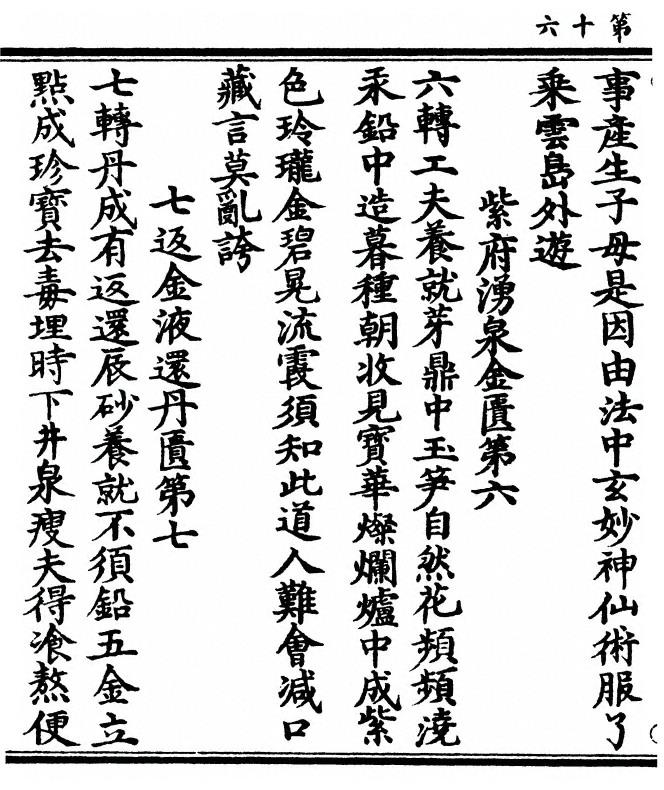 第十六
事產生子母是因由法中玄妙神仙術服了
乘雲島外遊
紫府湧泉金匱第六
六轉工夫養就芽鼎中玉笋自然花頻頻澆
汞鉛中造暮種朝收見寶華燦爛爐中成紫
色玲瓏金碧晃流霞須知此道人難會減口
藏言莫亂誇
七返金液還丹匱第七
七轉丹成有返還辰砂養就不須鉛五金立
點成珍寶去毒埋時下井泉瘦夫得飡熬便